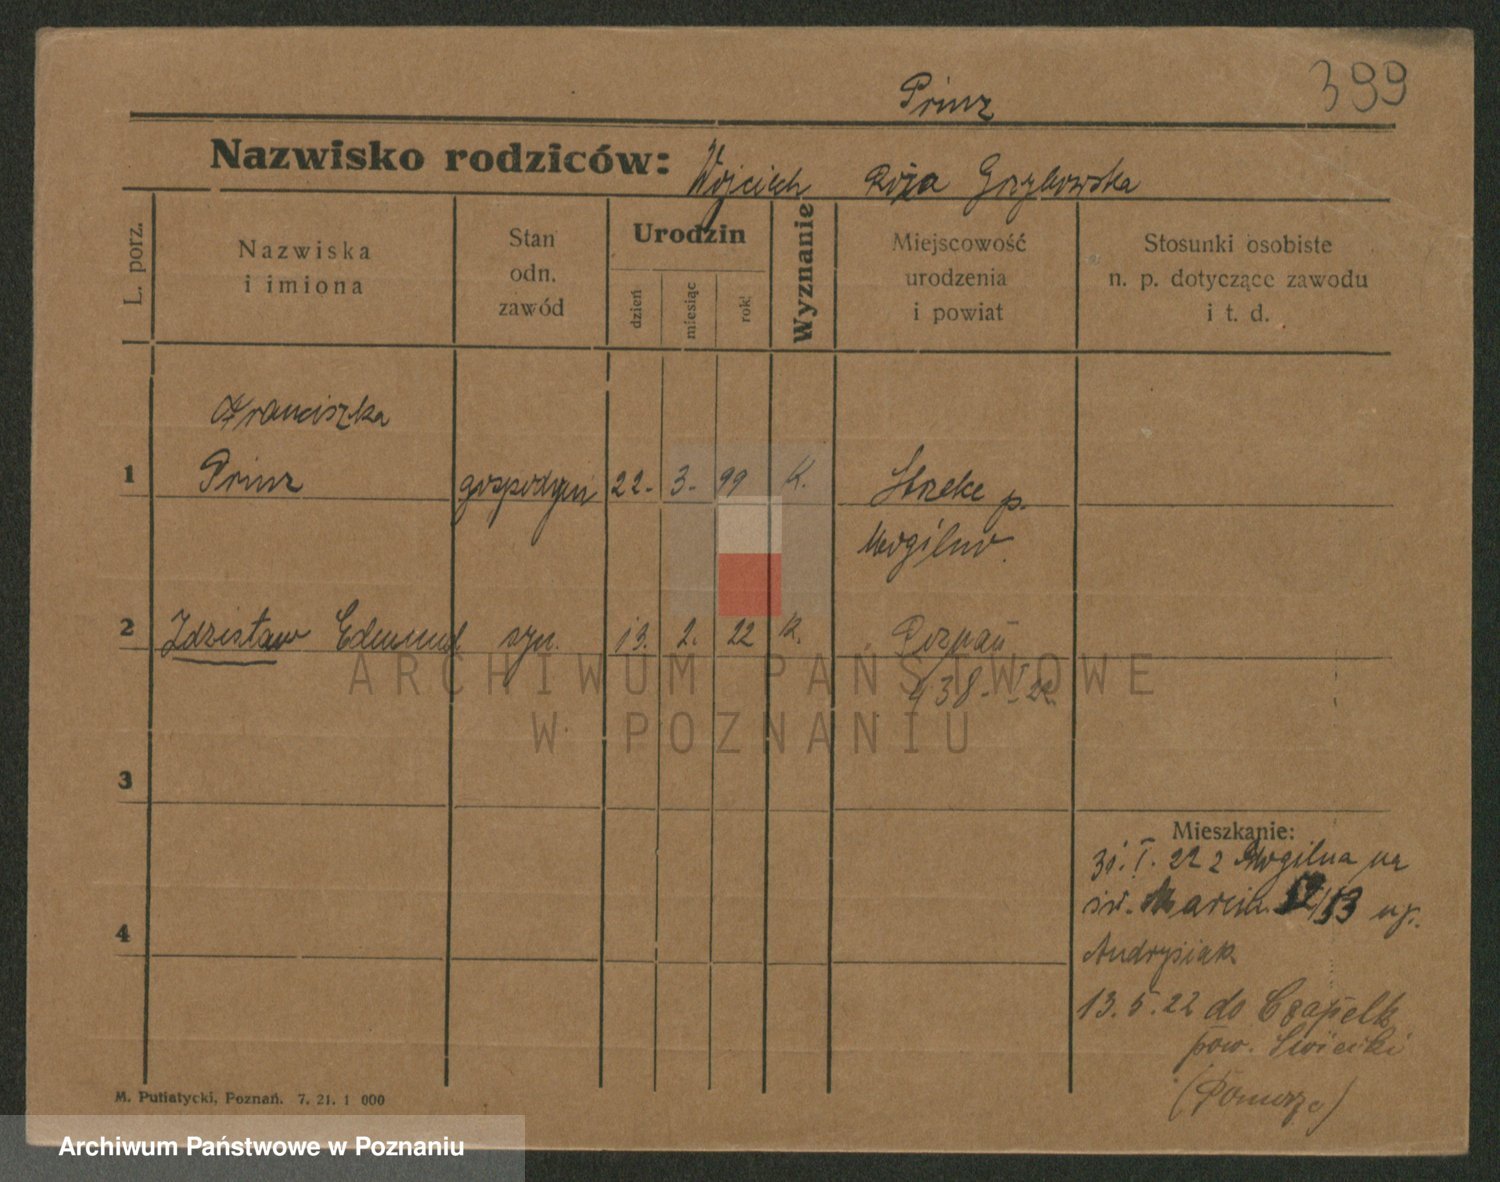 399
Prinz
Nazwisko rodziców: Wojciech Róża Grzybowska
L. porz.
Nazwiska
i imiona
Stan
odn.
zawód
Urodzin
dzień
miesiąc
rok
Wyznanie
Miejscowość
urodzenia
i powiat
Stosunki osobiste
n. p. dotyczące zawodu
i t. d.
Franciszka
1 Prinz gospodyni 22. 3. 99 K. p.
Mogilno.
2 Zdzisław Edmund syn. 13. 2. 22 K. Poznań
438 - V 22
ARCHIWUM PAŃSTWOWE
W POZNANIU
3
Mieszkanie:
30. I. 22 z Mogilna na
św. Marcin 52/53 up.
4
Andrysiak
13. 5. 22 do Czapelk
pow. Świecki
(Pomorze)
M. Putiatycki, Poznań. 7. 21. 1 000
Archiwum Państwowe w Poznaniu